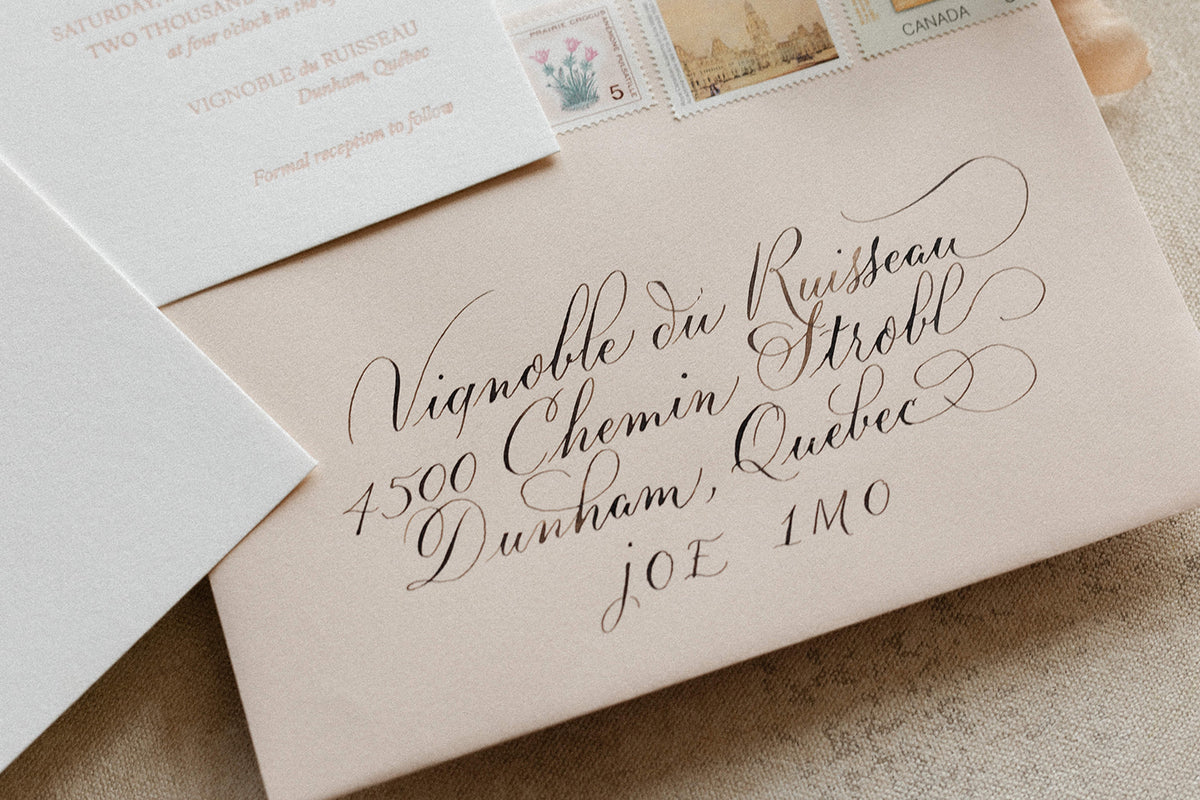 SATURDAY,
TWO THOUSAND
at four o'clock in the
VIGNOBLE du RUISSEAU
Dunham, Québec
Formal reception to follow
PRAIRIE CROCUS
5
CANADA
Vignoble du Ruisseau
4500 Chemin Strobl
Dunham, Quebec
JOE 1MO